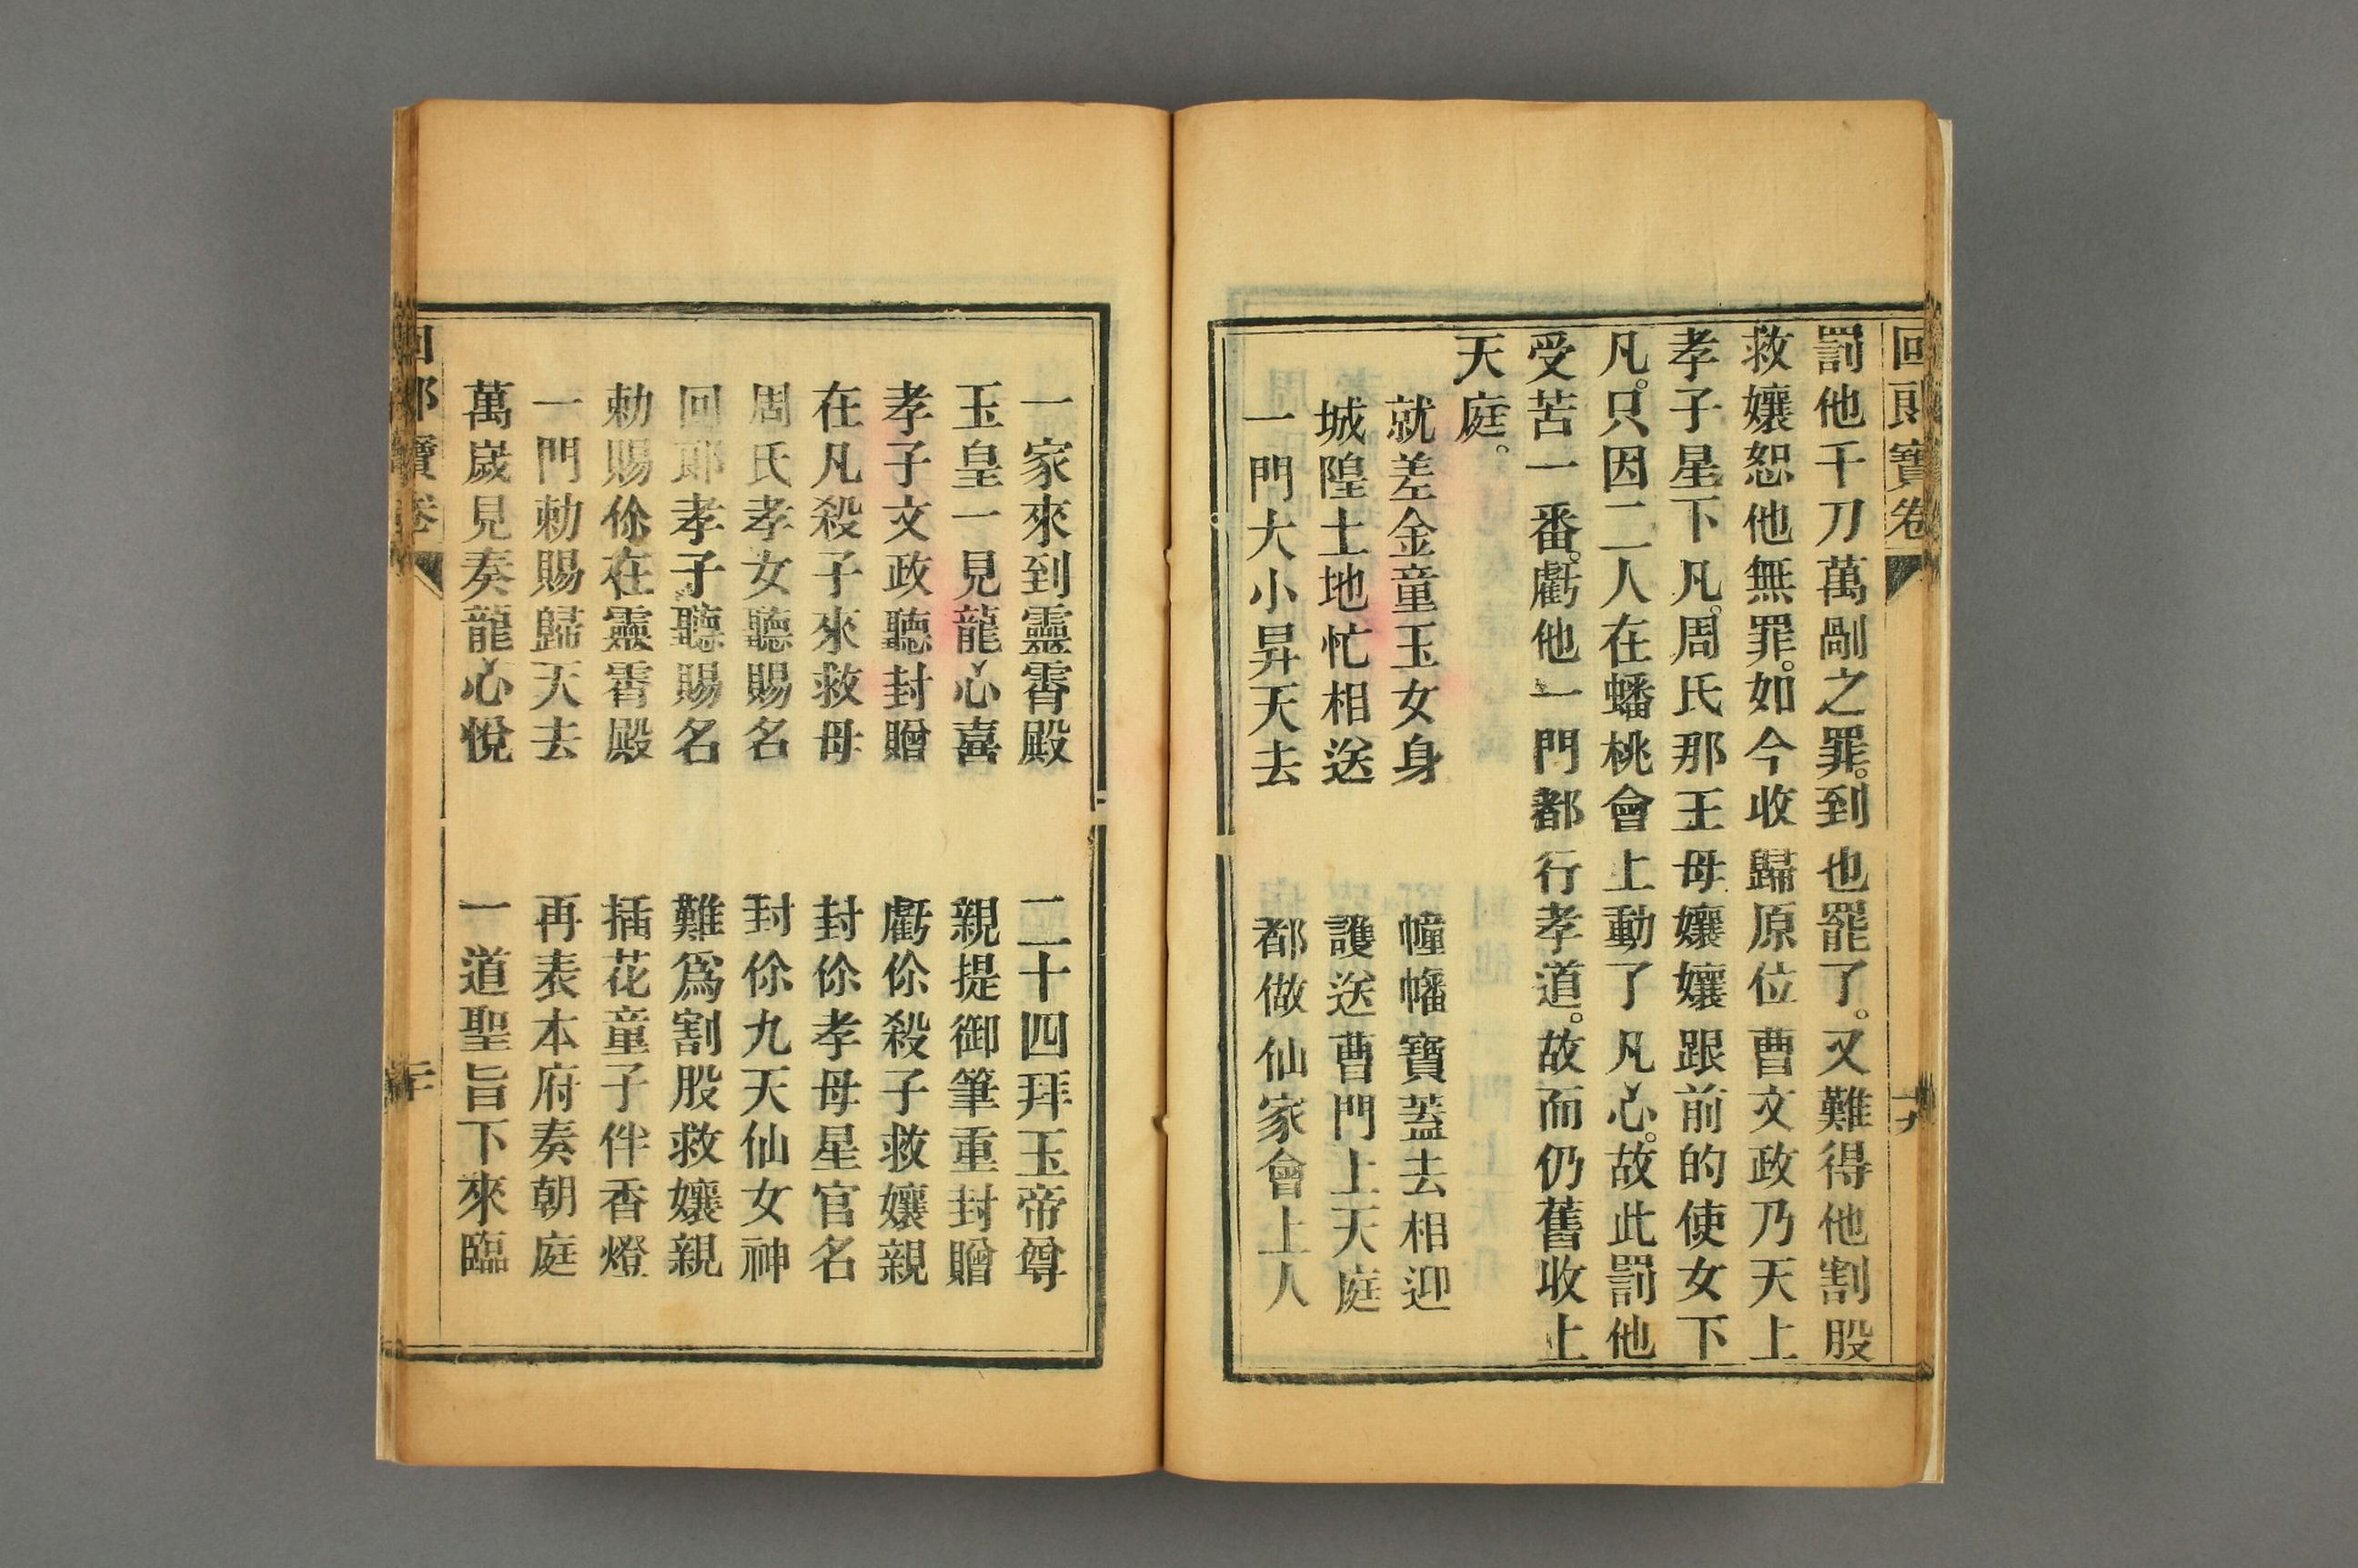 回郎寶卷
十九
罰他千刀萬剮之罪。到也罷了。又難得他割股
救孃恕他無罪。如今收歸原位曹文政乃天上
孝子星下凡。周氏那王母孃孃跟前的使女下
凡。只因二人在蟠桃會上動了凡心。故此罰他
受苦一番。虧他一門都行孝道。故而仍舊收上
天庭。
就差金童玉女身　幢幡寶蓋去相迎
城隍土地忙相送　護送曹門上天庭
一門大小昇天去　都做仙家會上人
一家來到靈霄殿　二十四拜玉帝尊
玉皇一見龍心喜　親提御筆重封贈
孝子文政聽封贈　虧伱殺子救孃親
在凡殺子來救母　封伱孝母星官名
周氏孝女聽賜名　封伱九天仙女神
回郎孝子聽賜名　難爲割股救孃親
勅賜伱在靈霄殿　插花童子伴香燈
一門勅賜歸天去　再表本府奏朝庭
萬歲見奏龍心悅　一道聖旨下來臨
回郎寶卷
二十